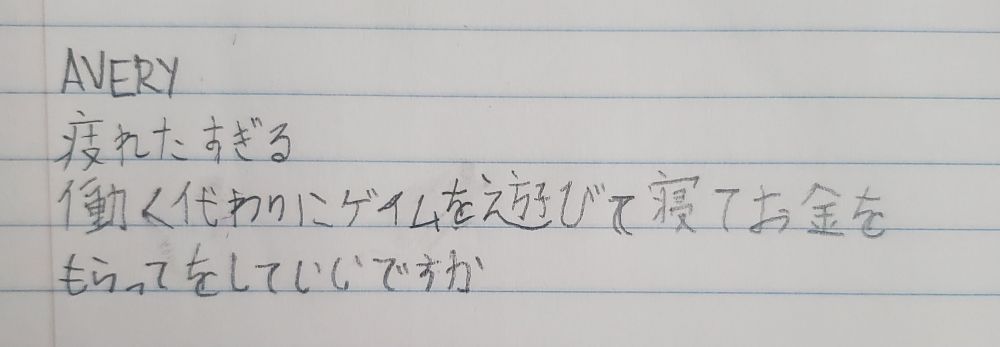 AVERY
疲れたすぎる
働く代わりにゲイムを遊びて寝てお金を
もらってをしていいですか